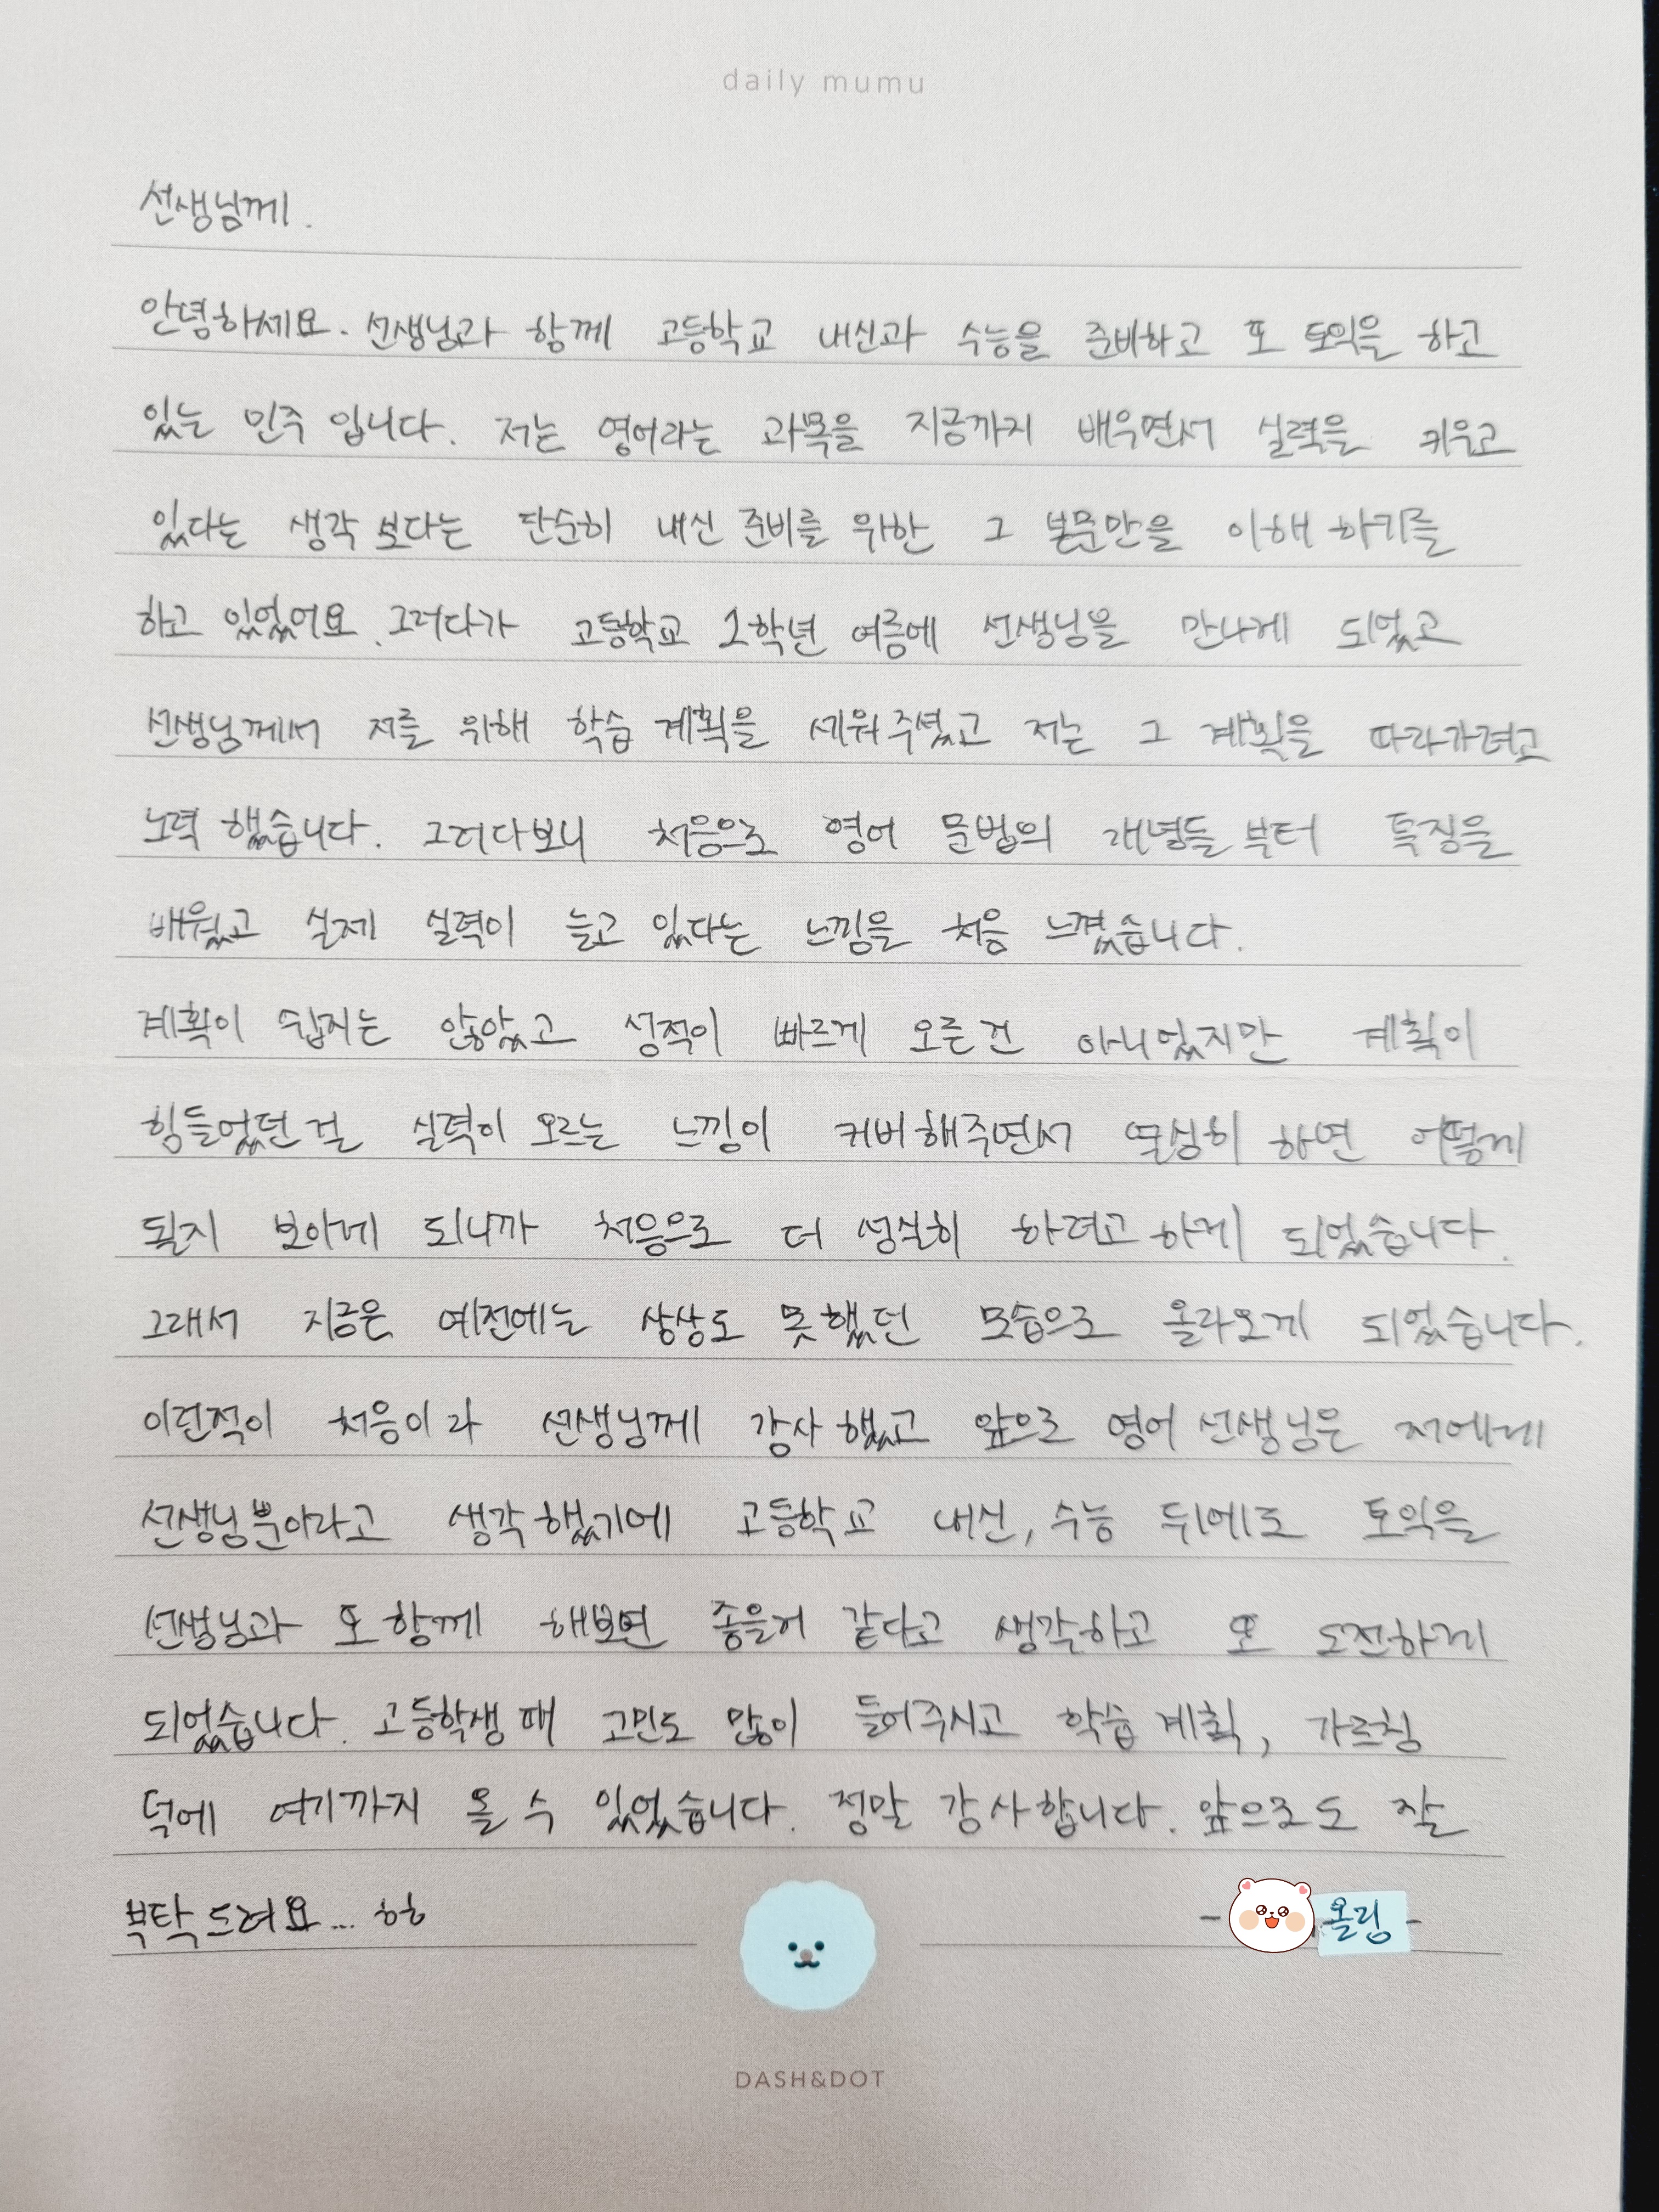 daily mumu
선생님께.
안녕하세요. 선생님과 함께 고등학교 내신과 수능을 준비하고 또 토익을 하고
있는 민주 입니다. 저는 영어라는 과목을 지금까지 배우면서 실력을 키우고
있다는 생각 보다는 단순히 내신 준비를 위한 그 본문만을 이해 하기를
하고 있었어요. 그러다가 고등학교 1학년 여름에 선생님을 만나게 되었고
선생님께서 저를 위해 학습 계획을 세워주셨고 저는 그 계획을 따라가려고
노력 했습니다. 그러다보니 처음으로 영어 문법의 개념들 부터 특징을
배웠고 실제 실력이 늘고 있다는 느낌을 처음 느꼈습니다.
계획이 쉽지는 않았고 성적이 빠르게 오른건 아니었지만 계획이
힘들었던 걸 실력이 오르는 느낌이 커버해주면서 열심히 하면 어떻게
될지 보이게 되니까 처음으로 더 성실히 하려고 하게 되었습니다.
그래서 지금은 예전에는 상상도 못했던 모습으로 올라오게 되었습니다.
이런적이 처음이라 선생님께 감사했고 앞으로 영어 선생님은 저에게
선생님뿐이라고 생각했기에 고등학교 내신, 수능 뒤에도 토익을
선생님과 또 함께 해보면 좋을거 같다고 생각하고 또 도전하게
되었습니다. 고등학생 때 고민도 많이 들어주시고 학습 계획, 가르침
덕에 여기까지 올 수 있었습니다. 정말 감사합니다. 앞으로도 잘
부탁드려요... ㅎㅎ
- 올림 -
DASH&DOT